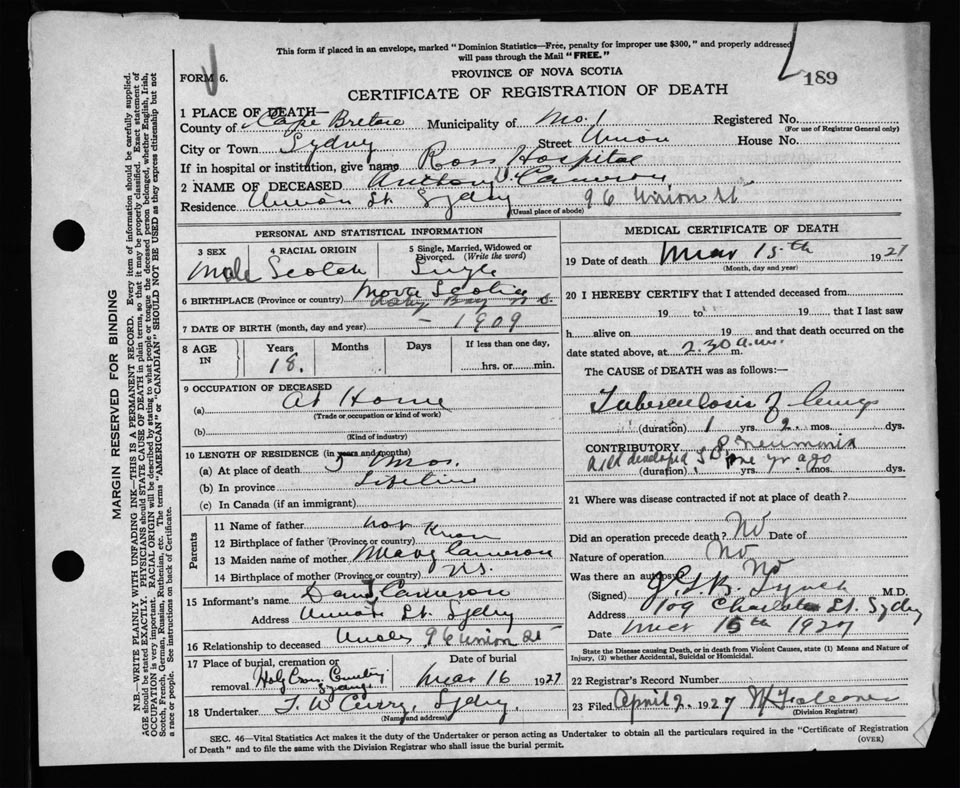 This form if placed in an envelope, marked "Dominion Statistics—Free, penalty for improper use $300," and properly addressed
will pass through the Mail "FREE."
FORM 6.
189
PROVINCE OF NOVA SCOTIA
CERTIFICATE OF REGISTRATION OF DEATH
1 PLACE OF DEATH—
County of Cape Breton Municipality of No. 1 Registered No.
(For use of Registrar General only)
City or Town Sydney Street Union House No.
If in hospital or institution, give name Ross Hospital
2 NAME OF DECEASED Anthony Cameron
Residence Union St. Sydney 96 Union St
(Usual place of abode)
PERSONAL AND STATISTICAL INFORMATION
3 SEX
Male
4 RACIAL ORIGIN
Scotch
5 Single, Married, Widowed or Divorced. (Write the word)
Single
6 BIRTHPLACE (Province or country) Nova Scotia
Bay N.S.
7 DATE OF BIRTH (month, day and year) – 1909
8 AGE IN
Years 18.
Months
Days
If less than one day,
hrs. or min.
9 OCCUPATION OF DECEASED
(a) At Home
(Trade or occupation or kind of work)
(b)
(Kind of industry)
10 LENGTH OF RESIDENCE (in years and months)
(a) At place of death mos.
(b) In province Lifetime
(c) In Canada (if an immigrant)
Parents
11 Name of father not known
12 Birthplace of father (Province or country)
13 Maiden name of mother Mary Cameron
14 Birthplace of mother (Province or country) N.S.
15 Informant's name Cameron
Address Union St. Sydney
16 Relationship to deceased Uncle 96 Union St
17 Place of burial, cremation or removal Holy Cross Cemetery Sydney
Date of burial
Mar 16 1927
18 Undertaker T. W. Curry, Sydney.
(Name and address)
MEDICAL CERTIFICATE OF DEATH
19 Date of death Mar 15th 1927
(Month, day and year)
20 I HEREBY CERTIFY that I attended deceased from
19 to 19, that I last saw
h alive on 19 and that death occurred on the
date stated above, at 2.30 a.m. m.
The CAUSE of DEATH was as follows:—
Tuberculosis of lungs
(duration) 1 yrs. 2 mos. dys.
CONTRIBUTORY Pneumonia
developed one yr ago
(duration) yrs. mos. dys.
21 Where was disease contracted if not at place of death?
Did an operation precede death? No Date of
Nature of operation No
Was there an autopsy? No
(Signed) Lynch M.D.
Address 109 Charlotte St. Sydney
Date Mar 15th 1927
State the Disease causing Death, or in death from Violent Causes, state (1) Means and Nature of
Injury, (2) whether Accidental, Suicidal or Homicidal.
22 Registrar's Record Number
23 Filed April 2 1927
(Division Registrar)
SEC. 46—Vital Statistics Act makes it duty of the Undertaker or person acting as Undertaker to obtain all the particulars required in the "Certificate of Registration
of Death" and to file the same with the Division Registrar who shall issue the burial permit.
(OVER)
MARGIN RESERVED FOR BINDING
N.B.—WRITE PLAINLY WITH UNFADING INK—THIS IS A PERMANENT RECORD. Every item of information should be carefully supplied.
AGE should be stated EXACTLY. PHYSICIANS should STATE CAUSE OF DEATH in plain terms, so that it may be properly classified. Exact statement of
OCCUPATION is very important. RACIAL ORIGIN will be described by stating to what people or tongue the deceased person belonged, whether English, Irish,
Scotch, French, German, Russian, Ruthenian, etc. The terms "AMERICAN" or "CANADIAN" SHOULD NOT BE USED as they express citizenship but not
a race or people. See instructions on back of Certificate.